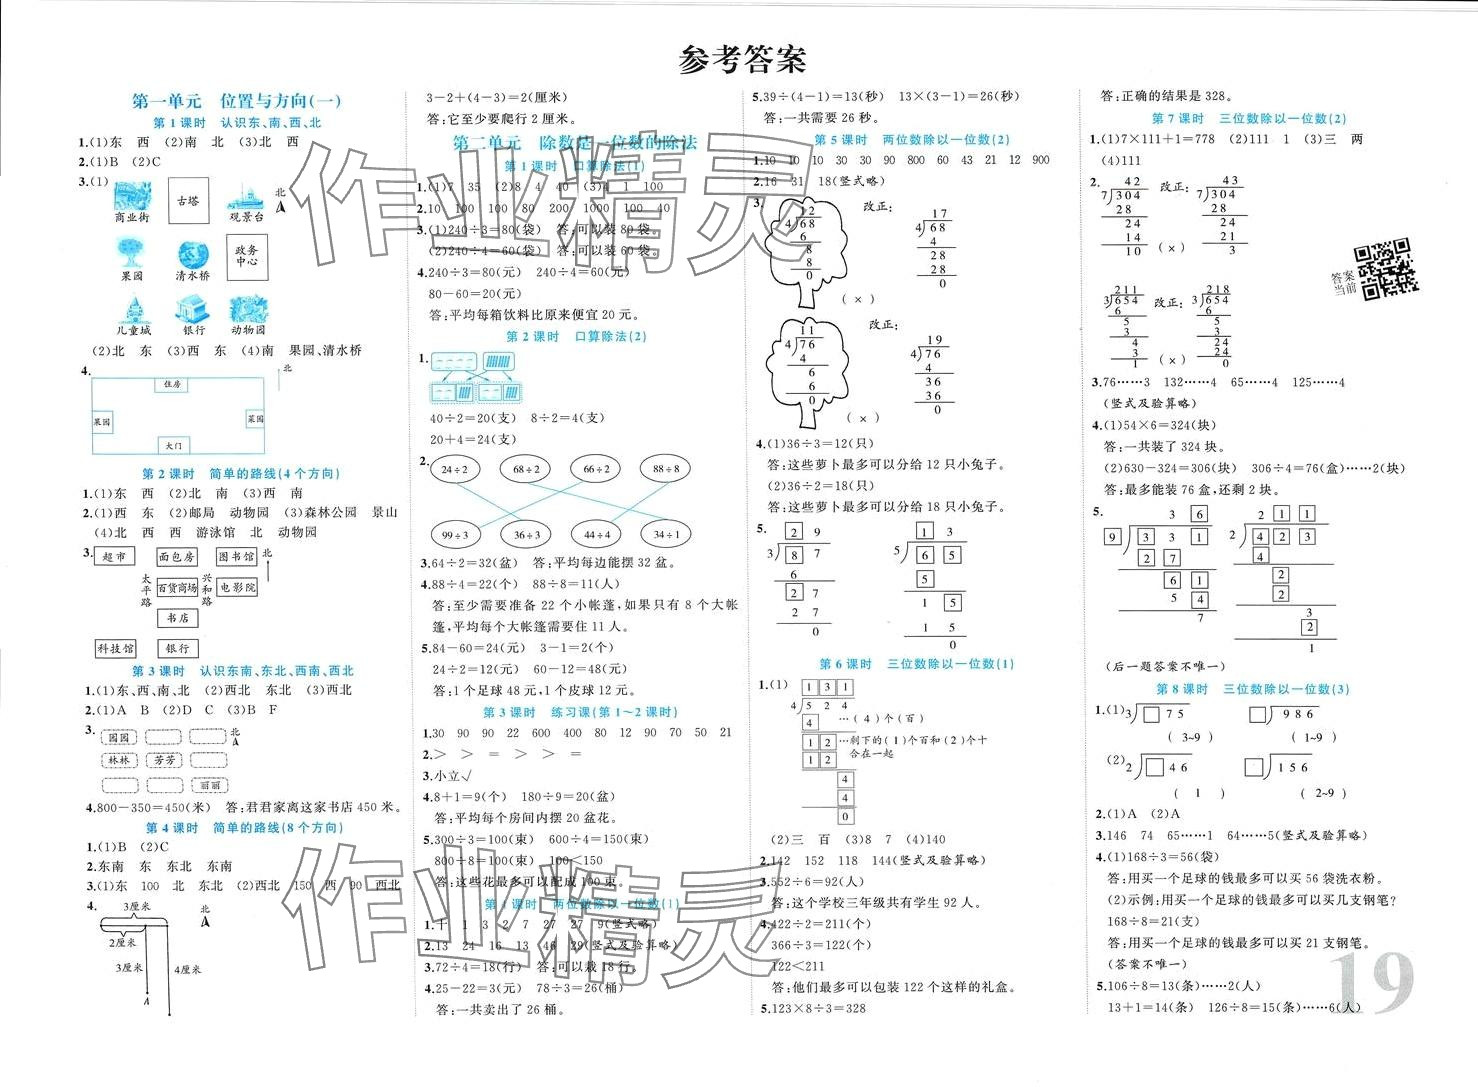 参考答案
第一单元　位置与方向(一)
第 1 课时　认识东、南、西、北
1.(1)东　西　(2)南　北　(3)北　西
2.(1)B　(2)C
3.(1)
商业街　古塔　观景台　北
果园　清水桥　政务中心
儿童城　银行　动物园
(2)北　东　(3)西　东　(4)南　果园、清水桥
4.
北
住房
果园　菜园
大门
第 2 课时　简单的路线(4 个方向)
1.(1)东　西　(2)北　南　(3)西　南
2.(1)西　东　(2)邮局　动物园　(3)森林公园　景山
(4)北　西　西　游泳馆　北　动物园
3.
超市　面包房　图书馆　北
太平路　百货商场　兴和路　电影院
书店
科技馆　银行
第 3 课时　认识东南、东北、西南、西北
1.(1)东、西、南、北　(2)西北　东北　(3)西北
2.(1)A　B　(2)D　C　(3)B　F
3.
园园　北
林林　芳芳
丽丽
4.800－350＝450(米)　答:君君家离这家书店 450 米。
第 4 课时　简单的路线(8 个方向)
1.(1)B　(2)C
2.东南　东　东北　东南
3.(1)东　100　北　东北　(2)西北　150　西　90　西北
4.
3厘米　北
2厘米
3厘米　4厘米
A
3－2＋(4－3)＝2(厘米)
答:它至少要爬行 2 厘米。
第二单元　除数是一位数的除法
第 1 课时　口算除法(1)
1.(1)7　35　(2)8　4　40　(3)4　1　100
2.10　100　100　80　200　1000　100　40
3.(1)240÷3＝80(袋)　答:可以装 80 袋。
(2)240÷4＝60(袋)　答:可以装 60 袋。
4.240÷3＝80(元)　240÷4＝60(元)
80－60＝20(元)
答:平均每箱饮料比原来便宜 20 元。
第 2 课时　口算除法(2)
1.
40÷2＝20(支)　8÷2＝4(支)
20＋4＝24(支)
2.
24÷2　68÷2　66÷2　88÷8
99÷3　36÷3　44÷4　34÷1
3.64÷2＝32(盆)　答:平均每边能摆 32 盆。
4.88÷4＝22(个)　88÷8＝11(人)
答:至少需要准备 22 个小帐篷,如果只有 8 个大帐
篷,平均每个大帐篷需要住 11 人。
5.84－60＝24(元)　3－1＝2(个)
24÷2＝12(元)　60－12＝48(元)
答:1 个足球 48 元,1 个皮球 12 元。
第 3 课时　练习课(第 1～2 课时)
1.30　90　90　22　600　400　80　12　90　70　50　21
2.＞　＞　＝　＞　＞　＝
3.小立√
4.8＋1＝9(个)　180÷9＝20(盆)
答:平均每个房间内摆 20 盆花。
5.300÷3＝100(束)　600÷4＝150(束)
800÷8＝100(束)　100＜150
答:这些花最多可以配成 100 束。
第 4 课时　两位数除以一位数(1)
1.十　1　3　2　7　27　27　9(竖式略)
2.13　24　16　13　46　29(竖式及验算略)
3.72÷4＝18(行)　答:可以栽 18 行。
4.25－22＝3(元)　78÷3＝26(桶)
答:一共卖出了 26 桶。
5.39÷(4－1)＝13(秒)　13×(3－1)＝26(秒)
答:一共需要 26 秒。
第 5 课时　两位数除以一位数(2)
1.10　10　10　30　30　90　800　60　43　21　12　900
2.16　31　18(竖式略)
3.　改正:
12　17
4 68　4 68
6　4
8　28
8　28
0　0
(×)
改正:
11　19
4 76　4 76
4　4
6　36
6　36
0　0
(×)
4.(1)36÷3＝12(只)
答:这些萝卜最多可以分给 12 只小兔子。
(2)36÷2＝18(只)
答:这些萝卜最多可以分给 18 只小兔子。
5.
2 9　1 3
3 8 7　5 6 5
6　5
2 7　1 5
2 7　1 5
0　0
第 6 课时　三位数除以一位数(1)
1.(1)
1 3 1
4 5 2 4
4　…(4)个(百)
1 2　…剩下的(1)个百和(2)个十
1 2　合在一起
4
4
0
(2)三　百　(3)8　7　(4)140
2.142　152　118　144(竖式及验算略)
3.552÷6＝92(人)
答:这个学校三年级共有学生 92 人。
4.422÷2＝211(个)
366÷3＝122(个)
122＜211
答:他们最多可以包装 122 个这样的礼盒。
5.123×8÷3＝328
答:正确的结果是 328。
第 7 课时　三位数除以一位数(2)
1.(1)7×111＋1＝778　(2)111　1　(3)三　两
(4)111
2.
42　改正:　43
7 304　7 304
28　28
24　24
14　21
10　(×)　3
211　改正:　218
3 654　3 654
6　6
5　5
3　3
4　24
3　24
1　(×)　0
3.76……3　132……4　65……4　125……4
(竖式及验算略)
4.(1)54×6＝324(块)
答:一共装了 324 块。
(2)630－324＝306(块)　306÷4＝76(盒)……2(块)
答:最多能装 76 盒,还剩 2 块。
5.
3 6　2 1 1
9 3 3 1　2 4 2 3
2 7　4
6 1　2
5 4　2
7　3
2
1
(后一题答案不唯一)
第 8 课时　三位数除以一位数(3)
1.(1) 3 □ 7 5　□ 9 8 6
(3~9)　(1~9)
(2) 2 □ 4 6　□ 1 5 6
(1)　(2~9)
2.(1)A　(2)A
3.146　74　65……1　64……5(竖式及验算略)
4.(1)168÷3＝56(袋)
答:用买一个足球的钱最多可以买 56 袋洗衣粉。
(2)示例:用买一个足球的钱最多可以买几支钢笔?
168÷8＝21(支)
答:用买一个足球的钱最多可以买 21 支钢笔。
(答案不唯一)
5.106÷8＝13(条)……2(人)
13＋1＝14(条)　126÷8＝15(条)……6(人)
答案
当前
19
作业精灵
作业精灵